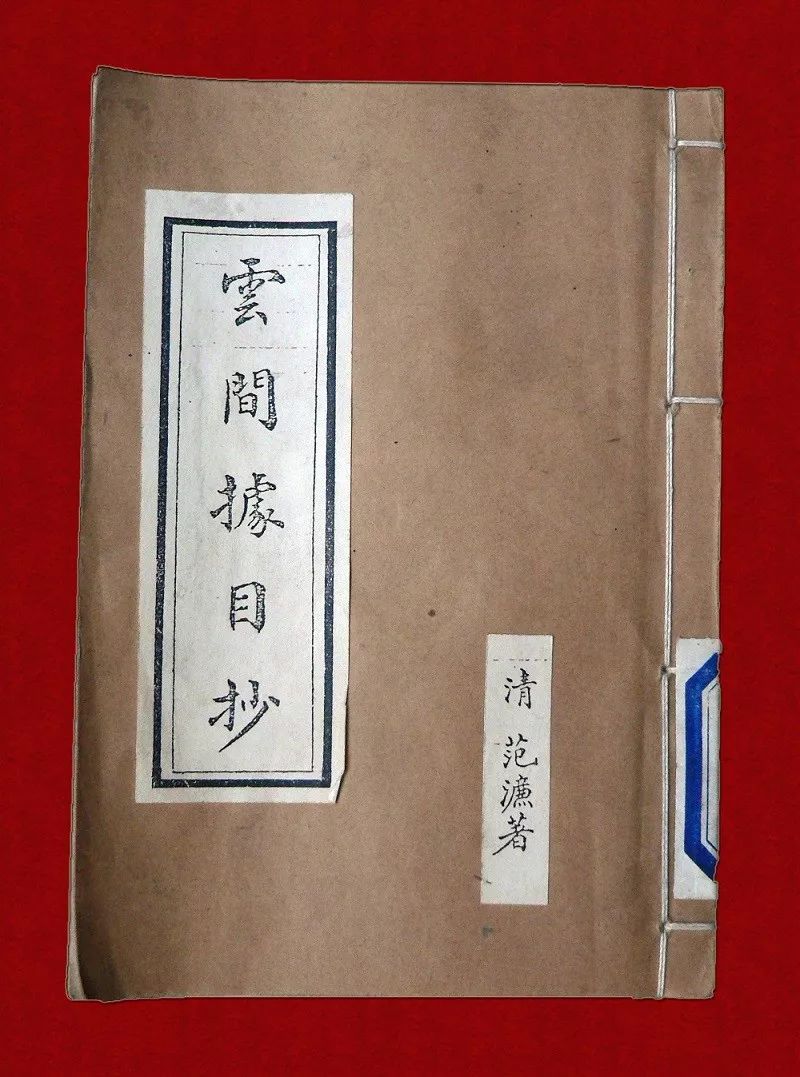 雲間據目抄
清 范濂著